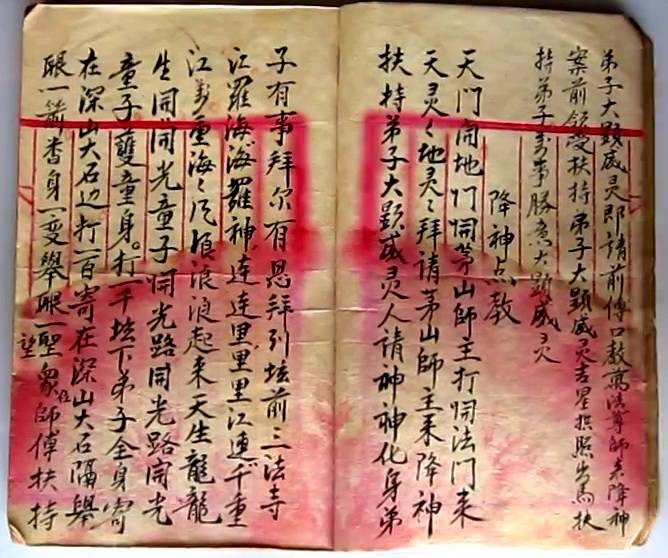 弟子大顕威灵即請前傳口教萬法尊師来降神
案前領受扶持弟子大顕威灵吉星拱照出馬扶
持弟子萬事勝意大顕威灵
降神点教
天门開地门開茅山師主打開法门来
天灵灵地灵灵拜請茅山師主来降神
扶持弟子大顕威灵人請神神化身弟
子有事拜尔有恩拜到坛前三法寺
江羅海海羅神連連里里里江連千重
江萬重海海浪浪浪起来天生龍龍
生開開光童子開光路開光路開光
童子雙童身打一千坛下弟子全身寄
在深山大石边打一百寄在深山大石隔舉
眼一箭杳身一变舉眼一望聖衆在師傅扶持